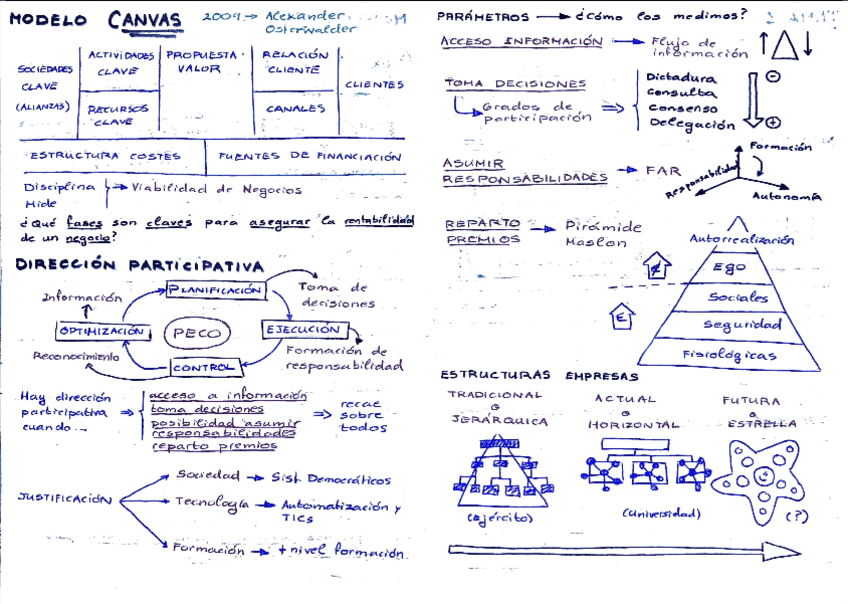 MODELO CANVAS 2009 → Alexander
Osterwalder
SOCIEDADES
CLAVE
(ALIANZAS)
ACTIVIDADES
CLAVE
RECURSOS
CLAVE
PROPUESTA
VALOR
RELACIÓN
CLIENTE
CANALES
CLIENTES
ESTRUCTURA COSTES
FUENTES DE FINANCIACIÓN
Disciplina
Mide
→ Viabilidad de Negocios
¿Qué fases son claves para asegurar la rentabilidad
de un negocio?
DIRECCIÓN PARTICIPATIVA
PLANIFICACIÓN
Toma de
decisiones
Información
OPTIMIZACIÓN
PECO
EJECUCIÓN
Formación de
responsabilidad
Reconocimiento
CONTROL
Hay dirección
participativa
cuando...
⇒
acceso a información
toma decisiones
posibilidad asumir
responsabilidades
reparto premios
⇒ recae
sobre
todos
JUSTIFICACIÓN
Sociedad → Sist. Democráticos
Tecnología → Automatización y
TICs
Formación → + nivel formación
PARÁMETROS → ¿cómo los medimos?
ACCESO INFORMACIÓN → Flujo de
información ↑ ↓
TOMA DECISIONES
Grados de
participación
⇒
Dictadura
Consulta
Consenso
Delegación
-
+
ASUMIR
RESPONSABILIDADES → FAR
Formación
Responsabilidad
Autonomía
REPARTO
PREMIOS → Pirámide
Maslon
Autorrealización
Ego
Sociales
Seguridad
Fisiológicas
E
ESTRUCTURAS EMPRESAS
TRADICIONAL
o
JERÁRQUICA
(ejército)
ACTUAL
o
HORIZONTAL
(Universidad)
FUTURA
o
ESTRELLA
(?)